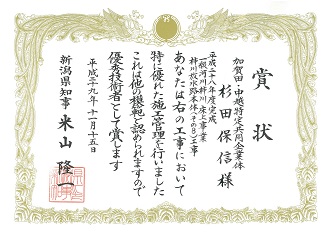 賞状
加賀田・中越特定共同企業体
杉田保信様
平成二十八年度完成
一級河川 枡川 床上事業
枡川放水路本体(その8)工事
あなたは右の工事において
特に優れた施工管理を行いました
これは他の模範と認められますので
優秀技術者として賞します
平成二十九年十一月十五日
新潟県知事 米山隆一